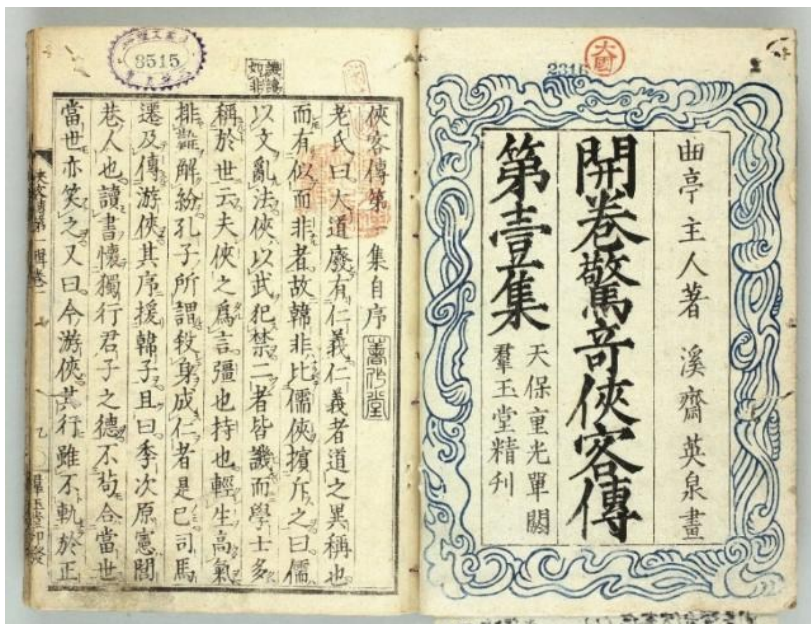 曲亭主人著 溪齋英泉畫
開卷驚奇俠客傳
第壹集
天保重光單閼
羣玉堂精刊
大國
2316
8515
俠客傳第一集自序
老氏曰大道廢有仁義仁義者道之異稱也
而有似而非者故韓非比儒俠擯斥之曰儒
以文亂法俠以武犯禁二者皆譏而學士多
稱於世云夫俠之爲言彊也持也輕生高氣
排難解紛孔子所謂殺身成仁者是已司馬
遷及傳游俠其序援韓子且曰季次原憲閭
巷人也讀書懷獨行君子之德不苟合當世
當世亦笑之又曰今游俠其行雖不軌於正